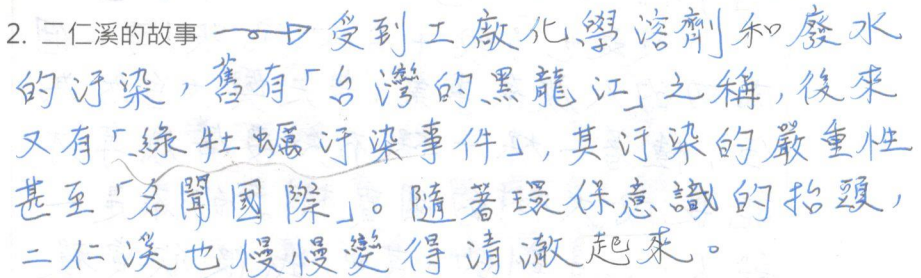 2. 二仁溪的故事 → 受到工廠化學溶劑和廢水
的汙染，舊有「台灣的黑龍江」之稱，後來
又有「綠牡蠣汙染事件」，其汙染的嚴重性
甚至「名聞國際」。隨著環保意識的抬頭，
二仁溪也慢慢變得清澈起來。